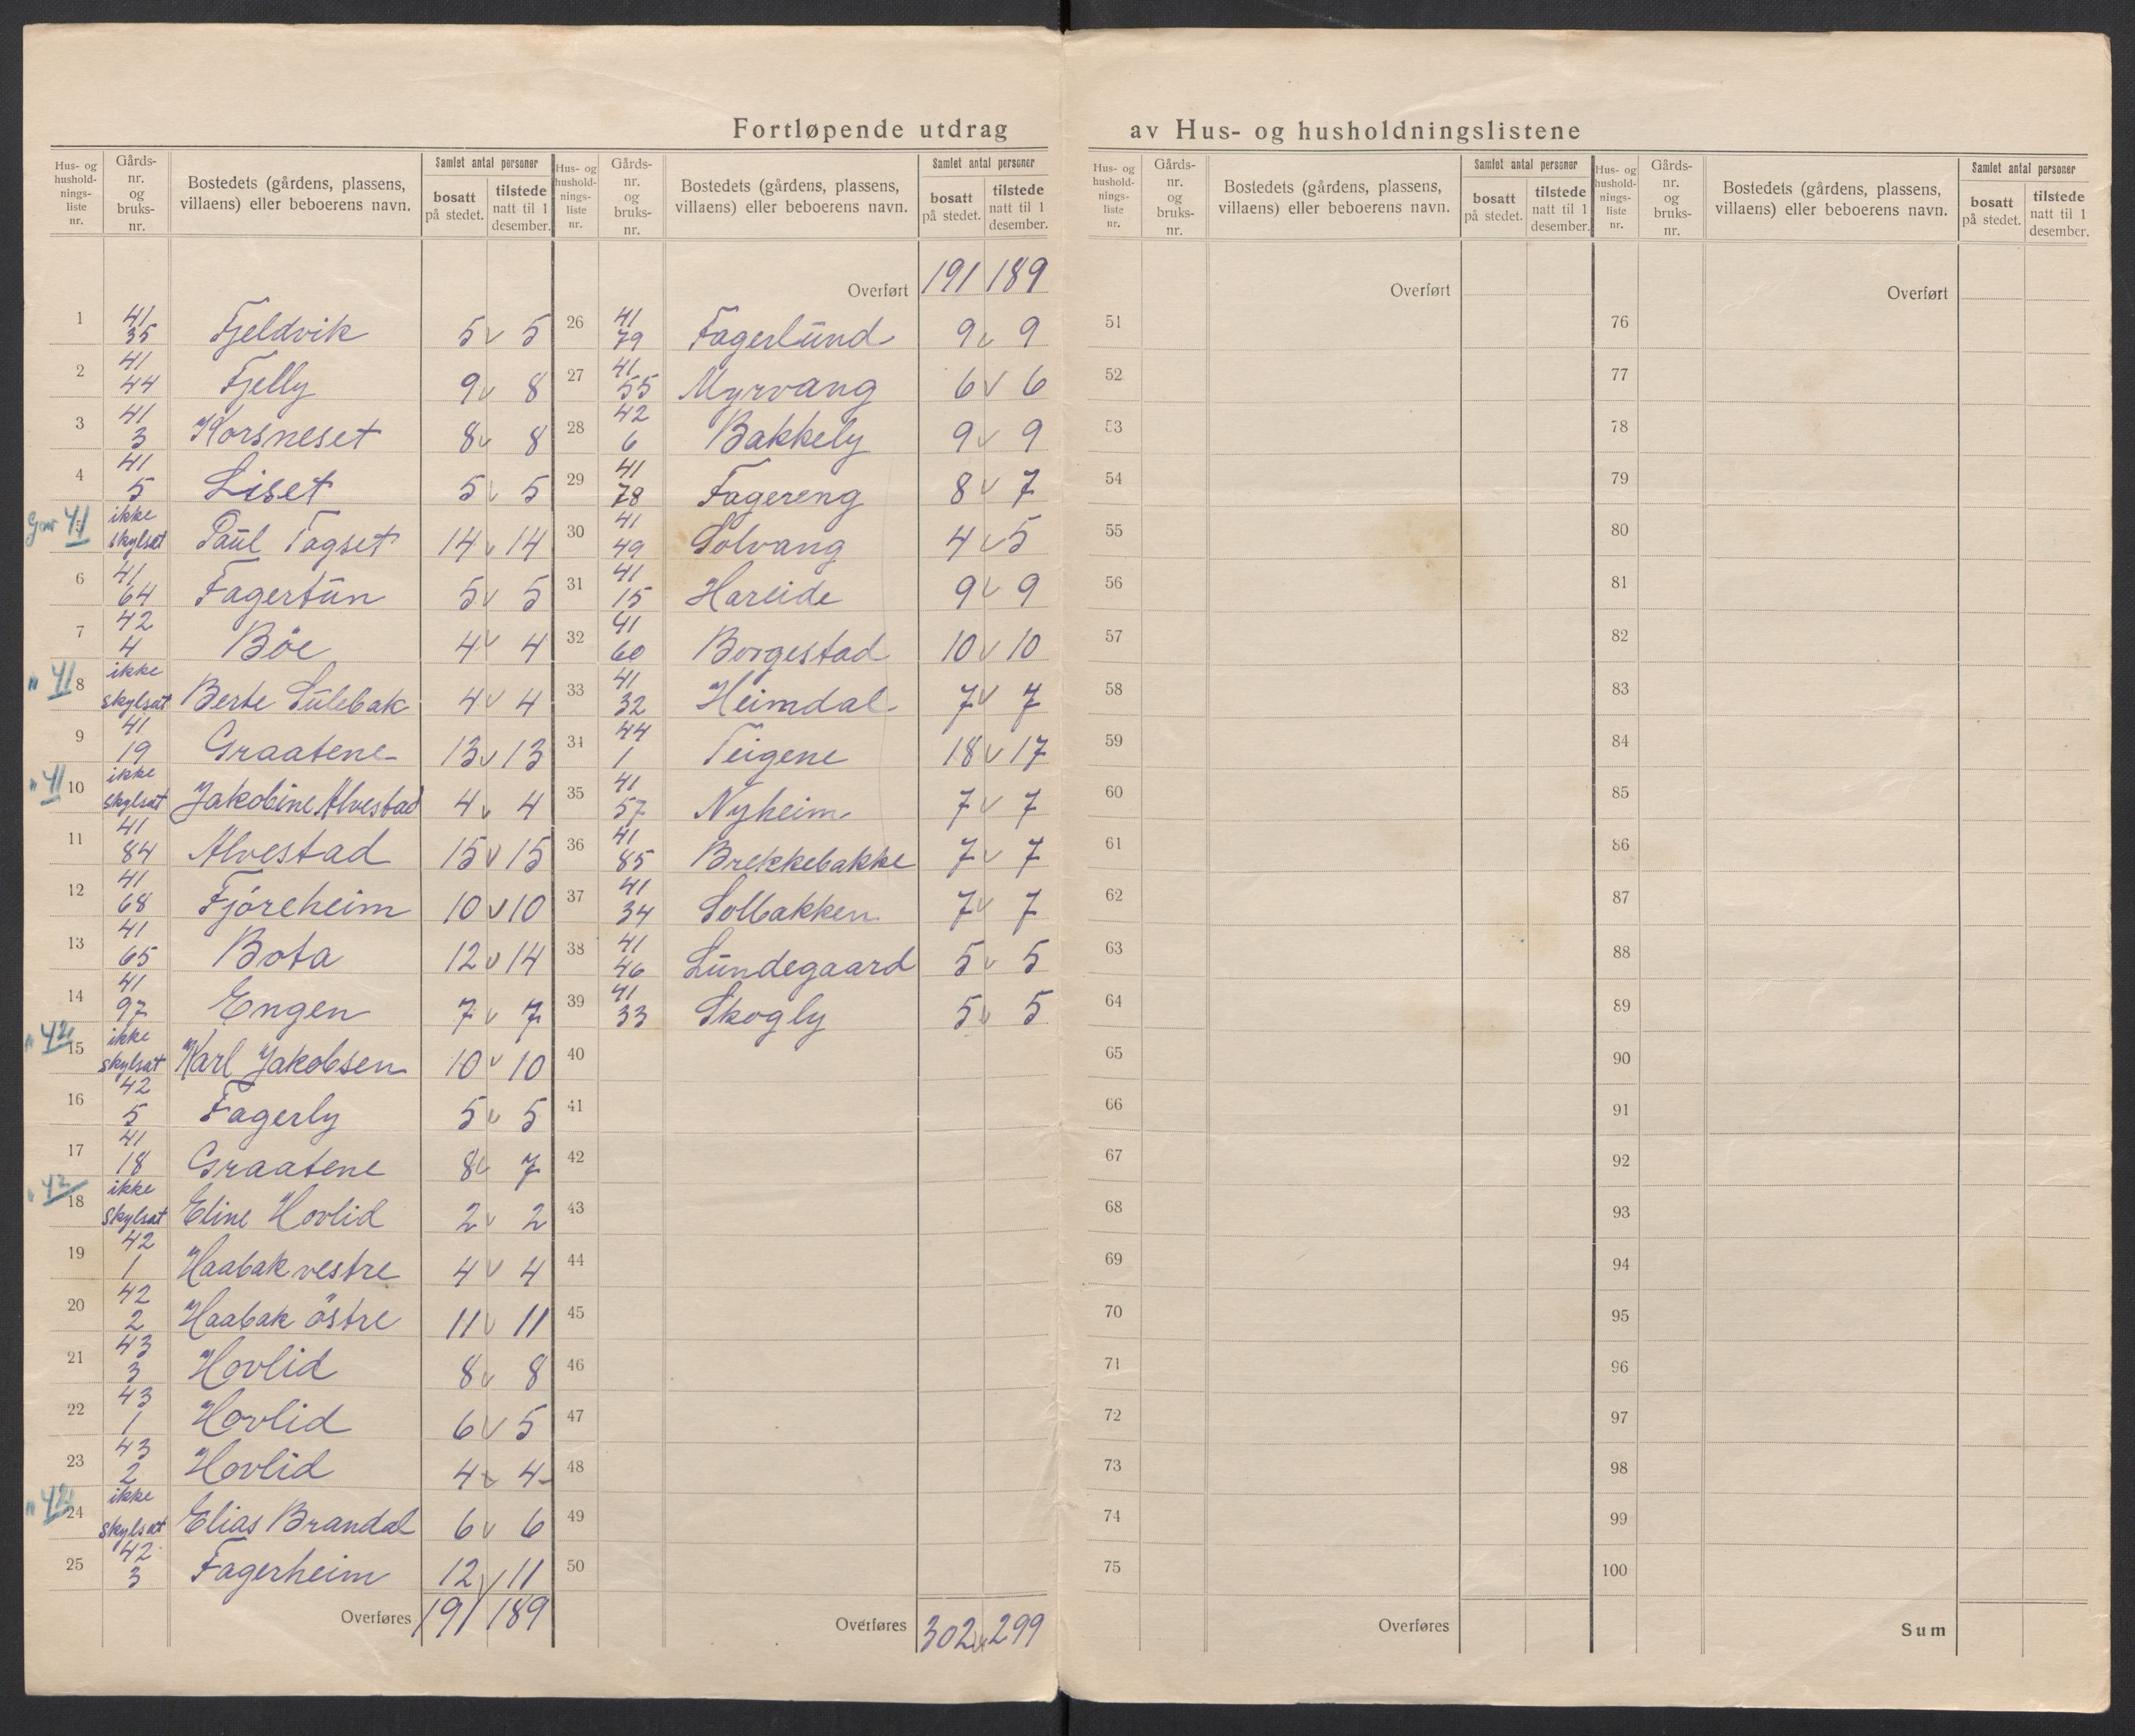 Fortløpende utdrag av Hus- og husholdningslistene
Hus- og husholdningsliste nr. | Gårds-nr. og bruks-nr. | Bostedets (gårdens, plassens, villaens) eller beboerens navn. | Samlet antal personer | bosatt på stedet. | tilstede natt til 1 desember.
1 41 35 Fjeldvik 5 v 5
2 41 44 Fjelly 9 v 8
3 41 3 Korsneset 8 v 8
4 41 5 Liset 5 v 5
Gnr 41 ikke skylsat Paul Tagset 14 v 14
6 41 64 Fagertun 5 v 5
7 42 4 Böe 4 v 4
" 41 8 ikke skylsat Berte Sulebak 4 v 4
9 41 19 Graatene 13 v 13
" 41 10 ikke skylsat Jakobine Alvestad 4 v 4
11 41 84 Alvestad 15 v 15
12 41 68 Fjöreheim 10 v 10
13 41 65 Bota 12 v 14
14 41 97 Engen 7 v 7
" 42 15 ikke skylsat Karl Jakobsen 10 v 10
16 42 5 Fagerly 5 v 5
17 41 18 Graatene 8 v 7
" 42 18 ikke skylsat Eline Hovlid 2 v 2
19 42 1 Haabak vestre 4 v 4
20 42 2 Haabak östre 11 v 11
21 43 3 Hovlid 8 v 8
22 43 1 Hovlid 6 v 5
23 43 2 Hovlid 4 v 4
" 42 24 ikke skylsat Elias Brandal 6 v 6
25 42 3 Fagerheim 12 v 11
Overføres 191 189
Hus- og husholdningsliste nr. | Gårds-nr. og bruks-nr. | Bostedets (gårdens, plassens, villaens) eller beboerens navn. | Samlet antal personer | bosatt på stedet. | tilstede natt til 1 desember.
Overført 191 189
26 41 79 Fagerlund 9 v 9
27 41 55 Myrvang 6 v 6
28 42 6 Bakkely 9 v 9
29 41 78 Fagereng 8 v 7
30 41 49 Solvang 4 v 5
31 41 15 Hareide 9 v 9
32 41 60 Borgestad 10 v 10
33 41 32 Heimdal 7 v 7
34 44 1 Teigene 18 v 17
35 41 57 Nyheim 7 v 7
36 41 85 Brekkebakke 7 v 7
37 41 34 Solbakken 7 v 7
38 41 46 Lundegaard 5 v 5
39 41 33 Skogly 5 v 5
40
41
42
43
44
45
46
47
48
49
50
Overføres 302 v 299
Hus- og husholdningsliste nr. | Gårds-nr. og bruks-nr. | Bostedets (gårdens, plassens, villaens) eller beboerens navn. | Samlet antal personer | bosatt på stedet. | tilstede natt til 1 desember.
Overført
51
52
53
54
55
56
57
58
59
60
61
62
63
64
65
66
67
68
69
70
71
72
73
74
75
Overføres
Hus- og husholdningsliste nr. | Gårds-nr. og bruks-nr. | Bostedets (gårdens, plassens, villaens) eller beboerens navn. | Samlet antal personer | bosatt på stedet. | tilstede natt til 1 desember.
Overført
76
77
78
79
80
81
82
83
84
85
86
87
88
89
90
91
92
93
94
95
96
97
98
99
100
Sum